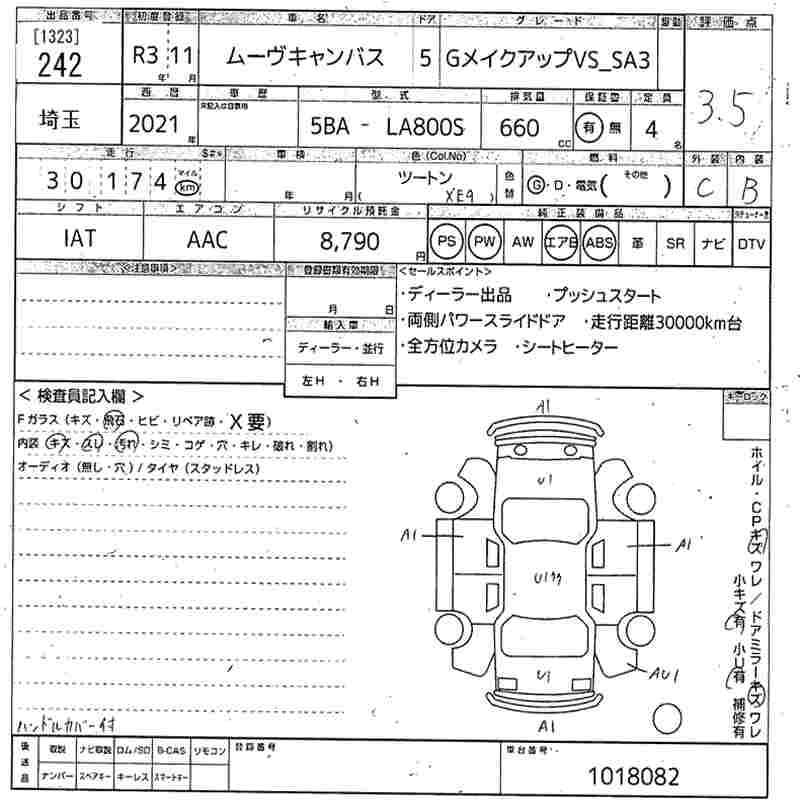 出品番号 初度登録 車名 ドア グレード 駆動 評価点
[1323]
242 R3 11 ムーヴキャンバス 5 GメイクアップVS_SA3
年 月
3.5
埼玉 西暦 車歴 型式 排気量 保証書 定員
未記入は自家用
2021年 5BA - LA800S 660cc 有 無 4名
走行 車検 色(Col.No) 燃料 外装 内装
30174 マイル km 年 月 ツートン (XE9) 色替 G・D・電気(その他) C B
シフト エアコン リサイクル預託金 純正装備品
IAT AAC 8,790円 PS PW AW エアB ABS 革 SR ナビ DTV
<注意事項> 登録書類有効期限 <セールスポイント>
月 日
・ディーラー出品 ・プッシュスタート
輸入車
・両側パワースライドドア ・走行距離30000km台
ディーラー・並行
・全方位カメラ ・シートヒーター
左H ・ 右H
<検査員記入欄>
キーロック
Fガラス(キズ・飛石・ヒビ・リペア跡・X要)
内装(キズ・スレ・汚れ・シミ・コゲ・穴・キレ・破れ・割れ)
オーディオ(無し・穴)/タイヤ(スタッドレス)
A1
U1
A1
A1
U1
AU1
A1
ホイル・CPキズワレ/ドアミラーキズワレ
小キズ有 小U有 補修有
ハンドルカバー付
後送品 取説 ナビ取説 ロム/SD B-CAS リモコン 登録番号 車台番号
ナンバー スペアキー キーレス スマートキー
1018082